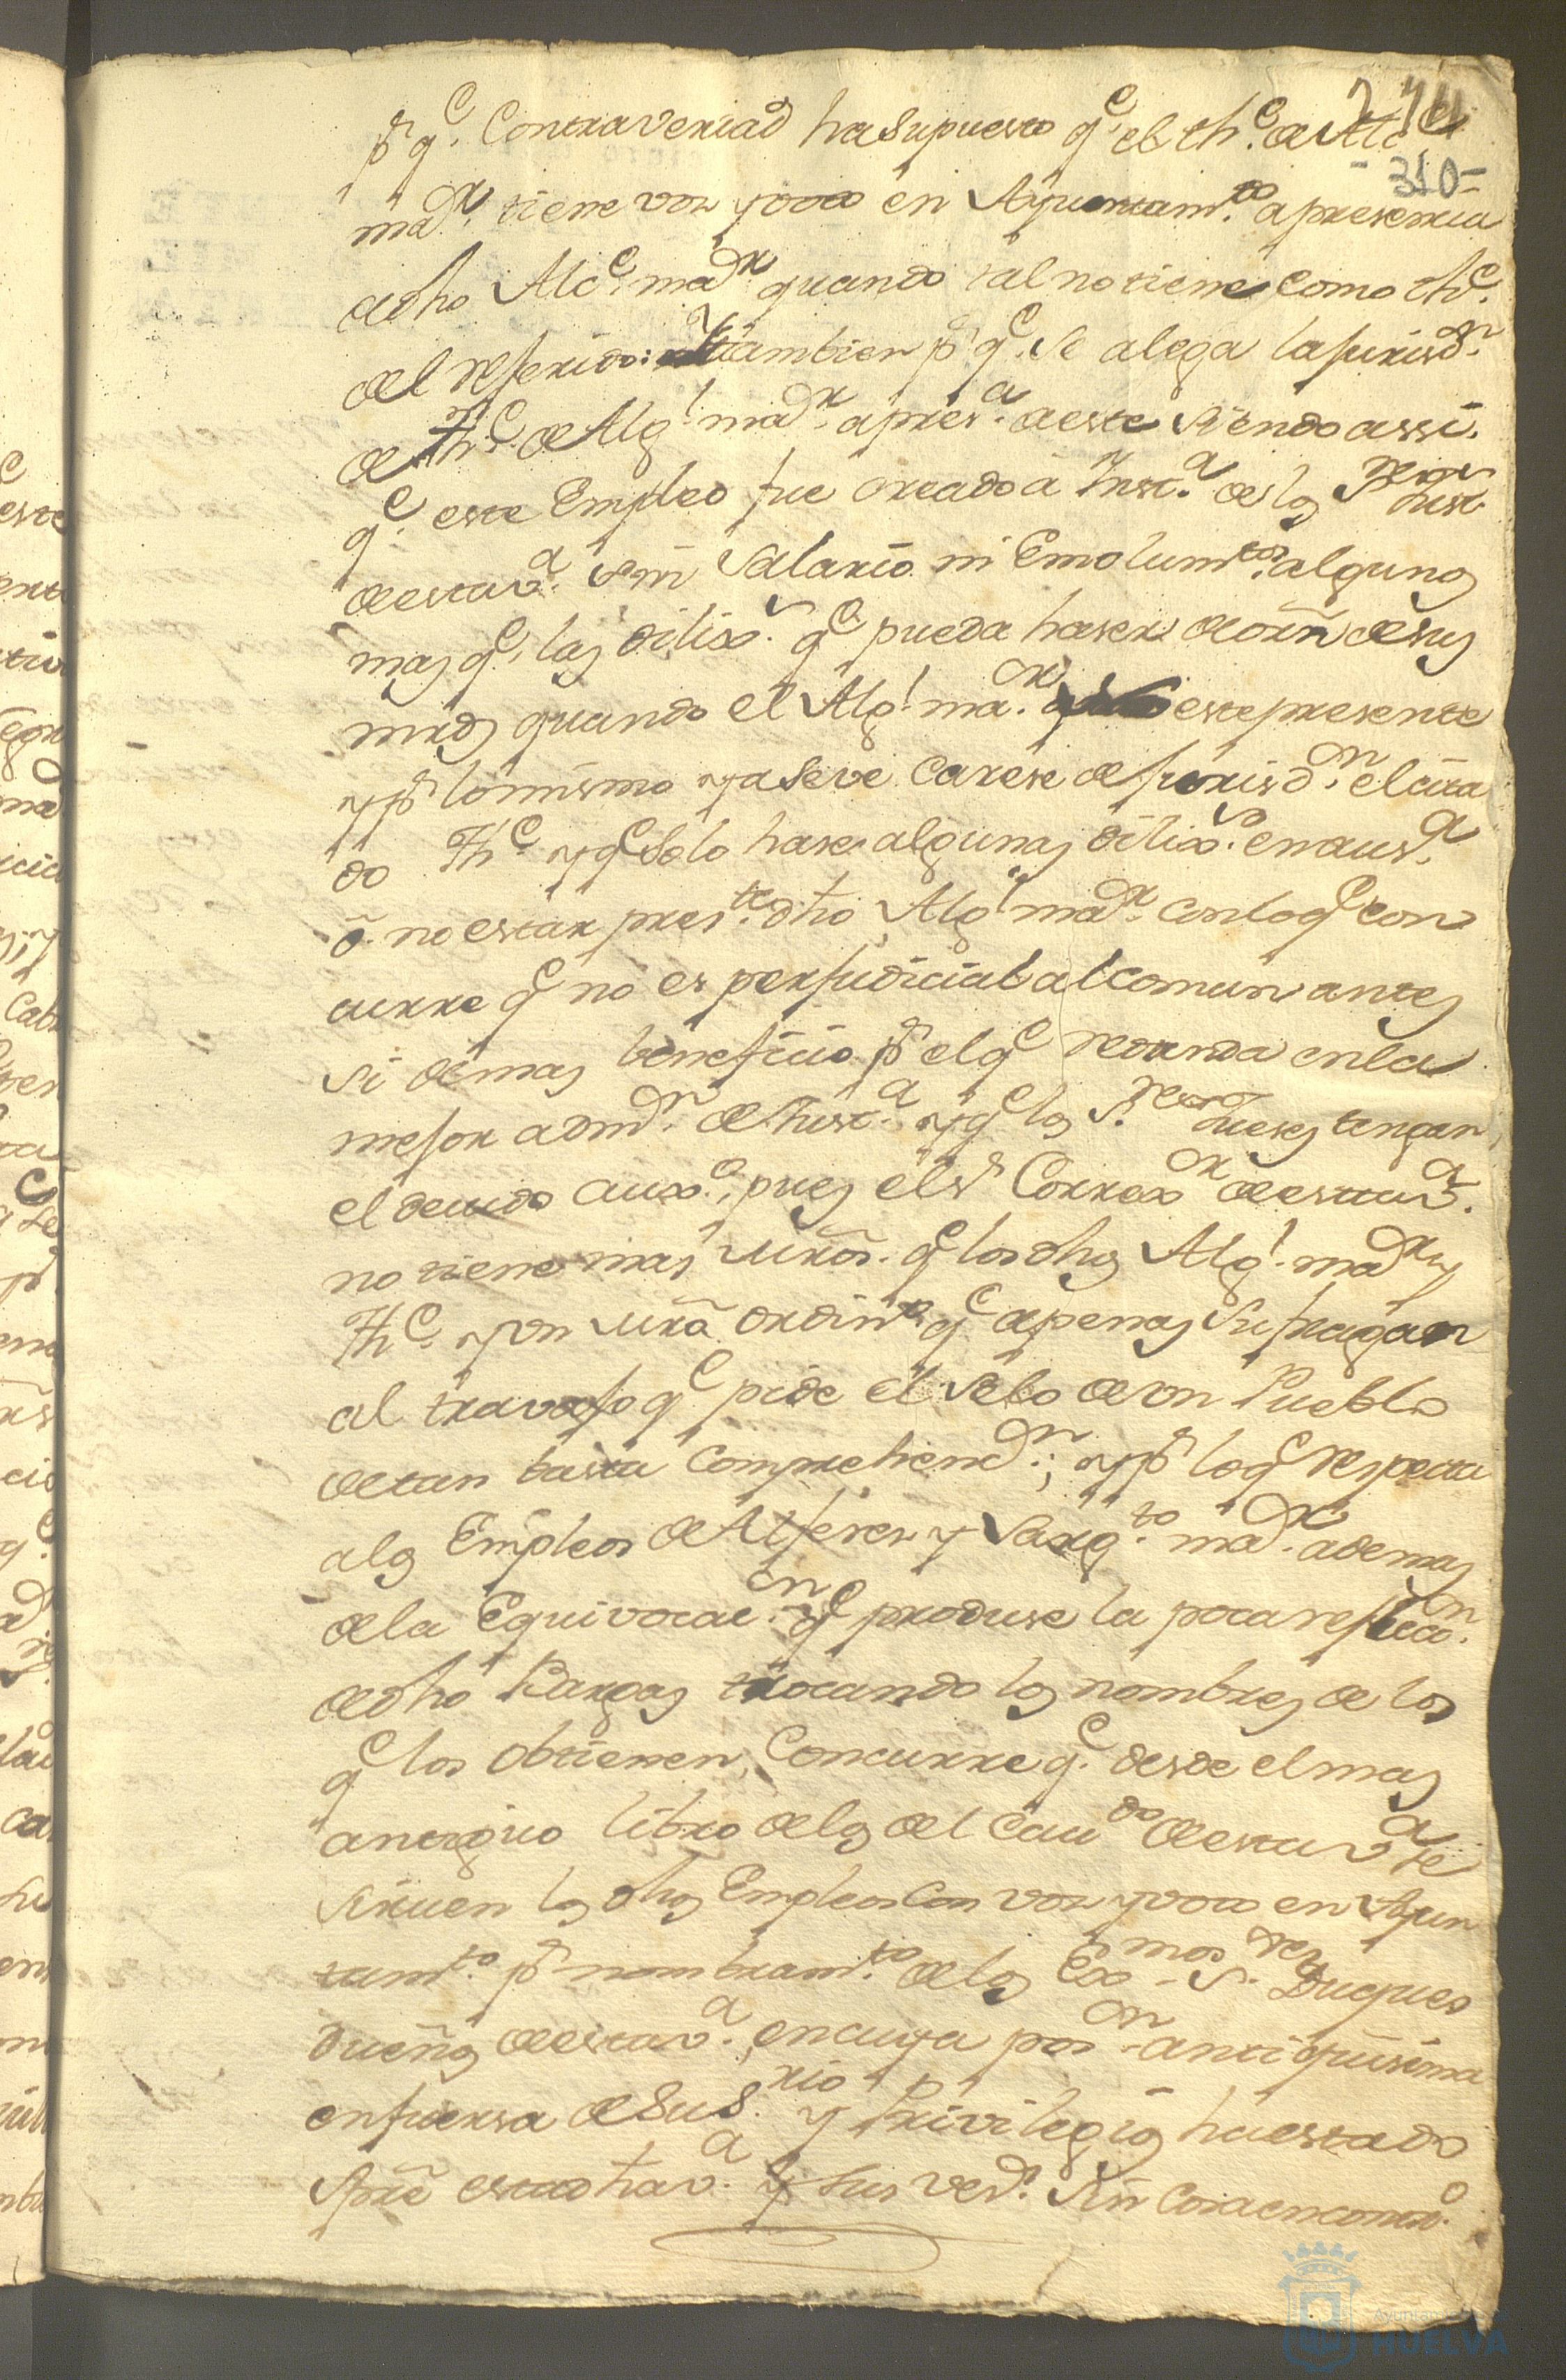 274
-310-
pr. qe. Contraveriad ha Supuesto qe. el the. de Alc
mar. tiene voz y voto en Ayuntamto. a presencia
de dho Alce. mar. quando tal no tiene como the.
del referido: y tambien pr. qe. Se alega la jurisdn.
de The. de Algl. mar. a presa. de este siendo assi.
qe. este Empleo fue creado a Insta. de los Sres. Just.
de esta va. sin Salario ni Emolumtos. algunos
mas qe. las dilixs. qe. pueda haser de orn de sus
mrds quando el Algl. mar. este presente
y pr lo mismo ya se ve carese de jurisdn. el cita
do The. y qe Solo hase algunas dilixs. en ausa.
ô no estar preste. dho Algl mar. con lo qe con
curre qe no es perjudicial al comun antes
si de mas beneficio pr el qe redunda en la
mejor admn. de Justa. y qe los Sres. Jueses tengan
el devido auxo., pues el Sr Correxr. de esta va.
no tiene mas Mrõs. qe los dhos Algl. mar y
The. y un Mrõ ordino. qe apenas Sufragan
al travajo qe pide el Selo de un Pueblo
de tan basta comprehendn.; y pr lo qe respecta
a los Empleos de Alferes y Sargto. mar. ademas
de la Equivocacn. qe produse la poca reflecn.
de dho Bargas trocando los nombres de los
qe los obtienen, Concurre qe. desde el mas
antiguo libro de los del Cavdo. de esta va. se
sirven los dhos Empleos con voz y voto en Ayun
tamto. pr nombramto. de los Exmos. Sres. Duques
dueños de esta va. en cuya posn. antiquisima
en fuersa de Su Srio. y Privilegios ha estado
Spre esta dha va. y sus vesos. Sin cosa en conto.
Ayuntamiento
HUELVA